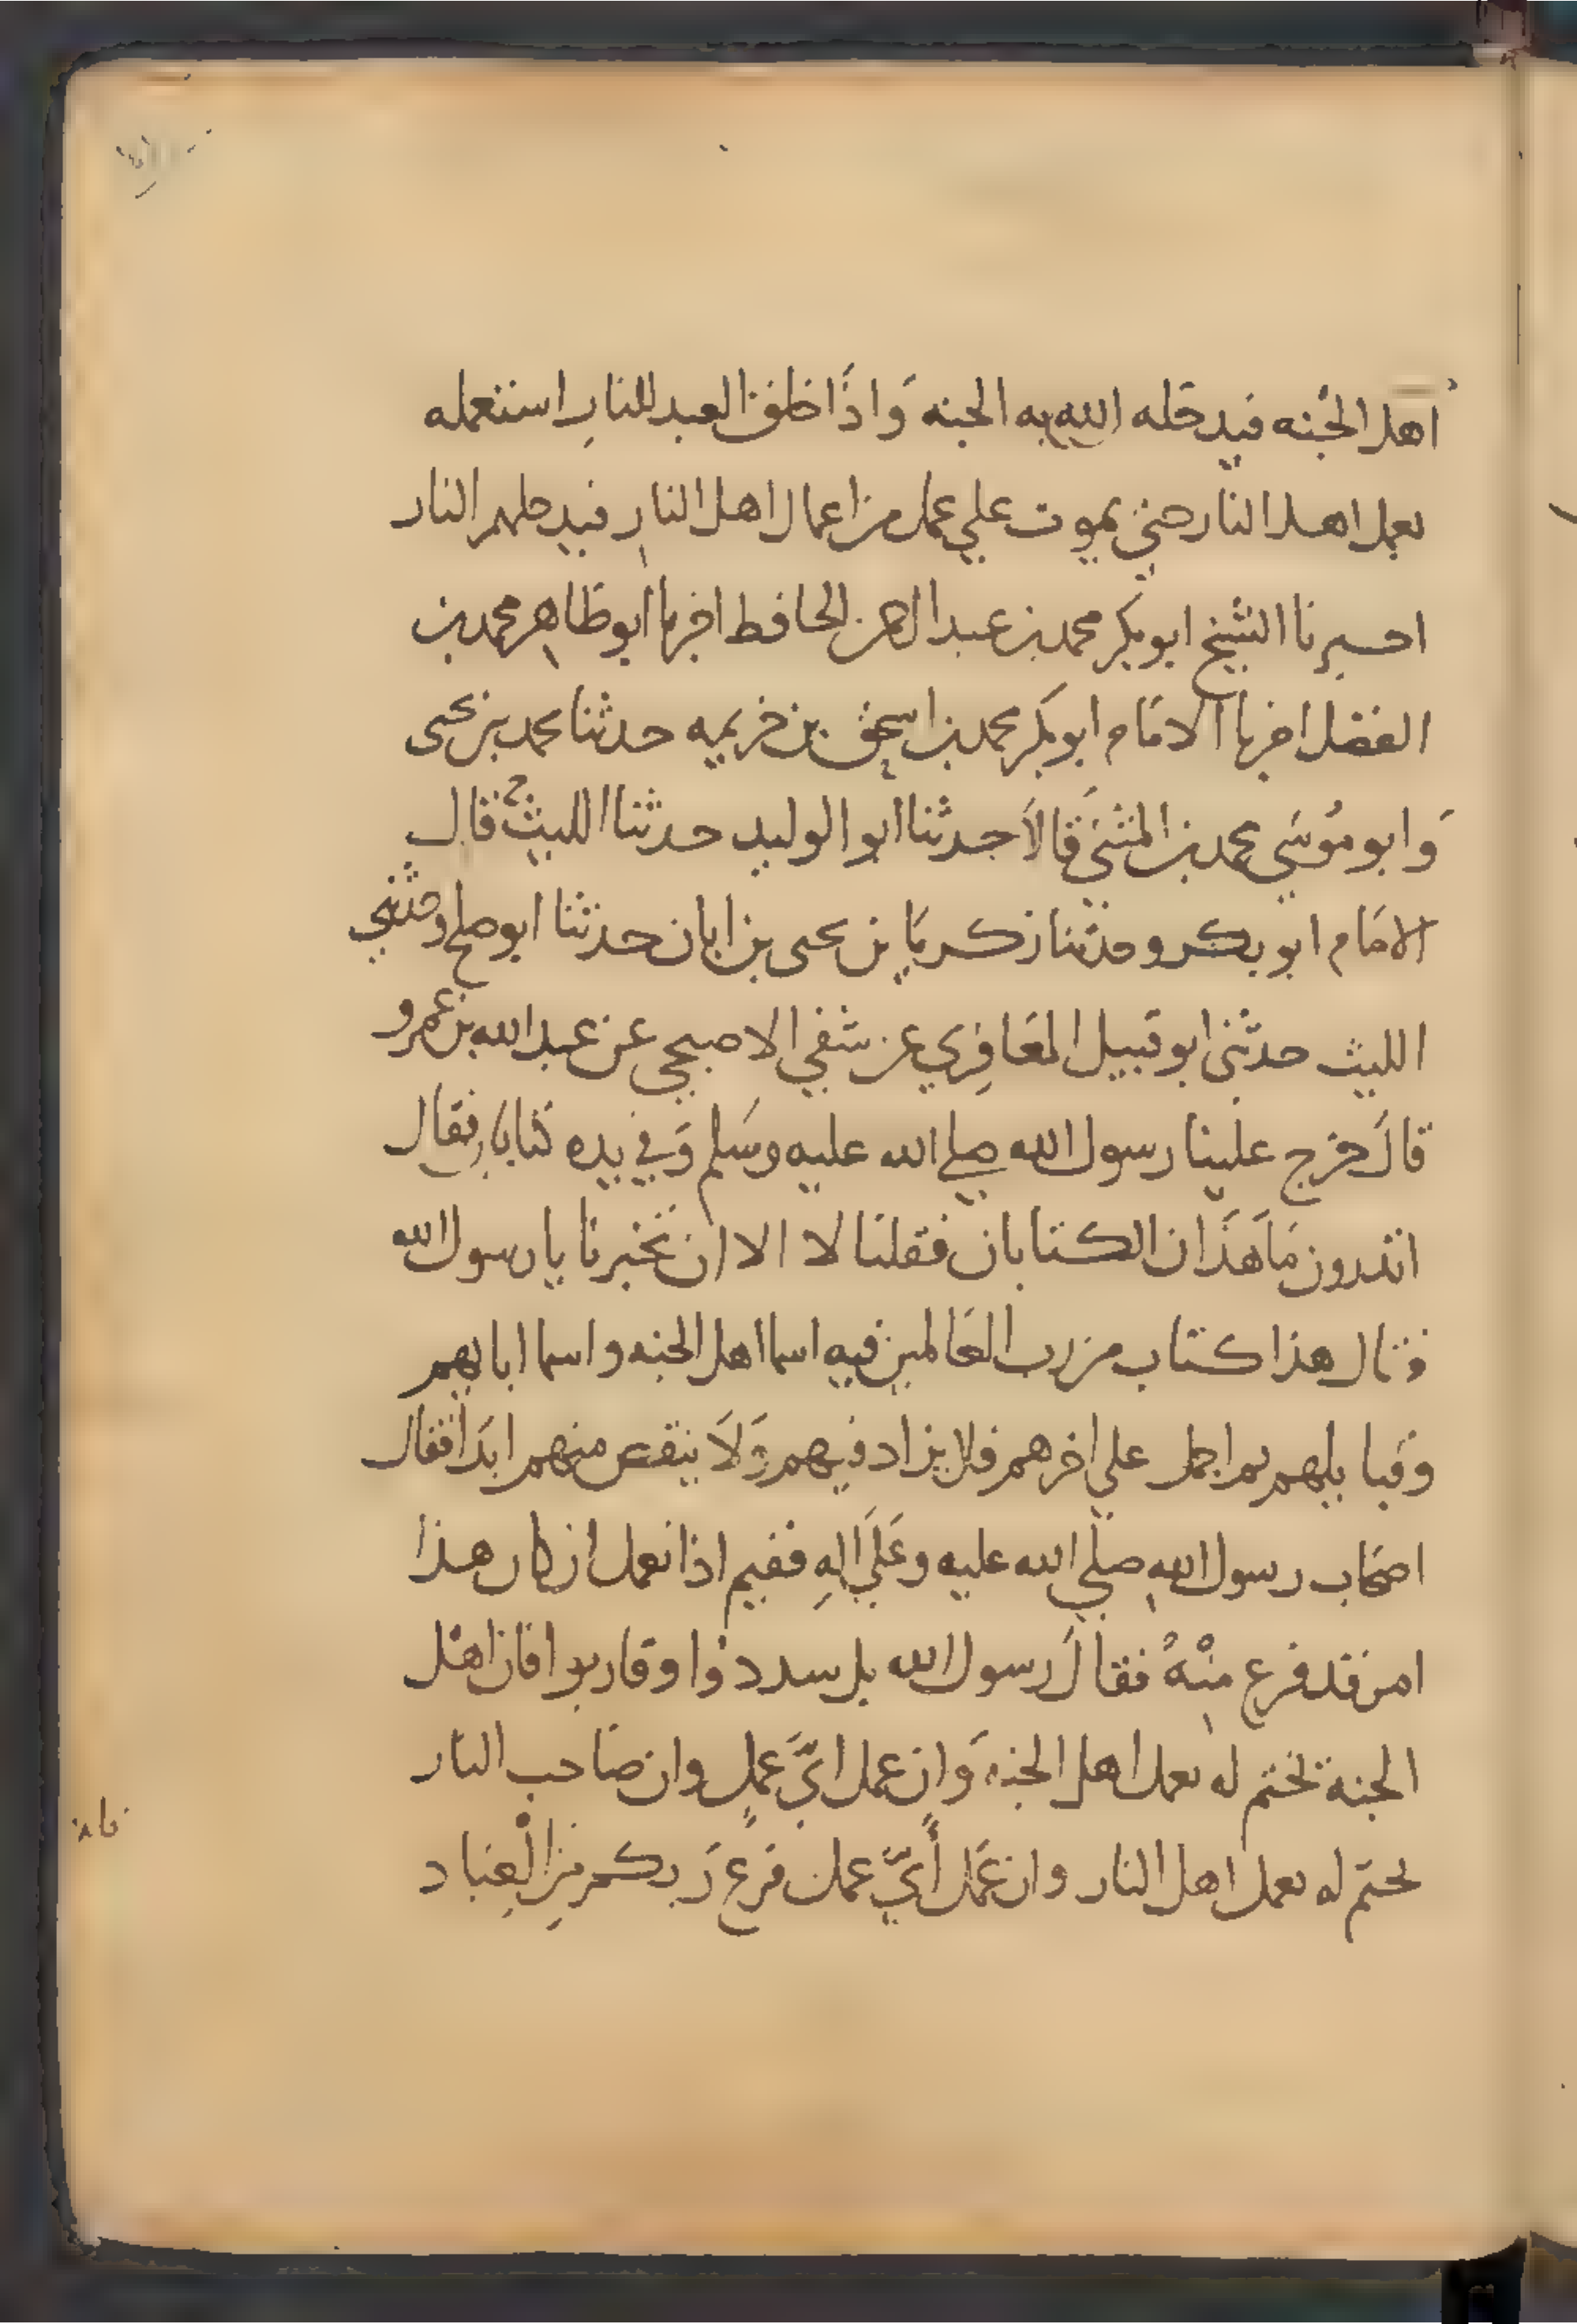 اهل الجنه فيدخله الله به الجنه وَاذَا خلق العبد للنارِ استعمله
بعمل اهل النار حتي يموت علي عمل من اعمال اهل النارِ فيدخلهم النار
اخبرنا الشيخ ابو بكر محمد بن عبد الرحمن الحافظ اخبرنا ابو طاهر محمد بن
الفضل اخبرنا الامام ابو بكر محمد بن اسحق بن خزيمه حدثنا محمد بن يحيى
وَابو موُسَي محمد بن المثني قالاَ حدثنا ابو الوليد حدثنا الليث ح قال
الامَام ابو بكر وحدثنا زكريا بن يحيى بن ابان حدثنا ابو صلح وحدثني
الليث حدثني ابو قبيل المعَافِري عن شفي الاصبحي عن عبد الله بن عمرو
قالَ خرج علينا رسول الله صلي الله عليه وسَلم وَفي يده كتابان فقال
اتدرون مَا هَذَان الكتابان فقلنا لا الا ان تخبرنا يا رسول الله
فقال هذا كتاب من رب العَالمين فيه اسما اهل الجنه واسما ابايهم
وَقبايلهم ثم اجمل علي اخرهم فلا يزاد فيهم وَلاَ ينقص منهم ابدَا فقال
اصحَاب رسول اللهِ صلي الله عليه وعَلَي الهِ ففيم اذا نعمل ان كان هذا
امر قد فرغ مِنْهُ فقالَ رسول الله بل سددوا وقاربوا فان اهل
الجنة يختم له بعمل اهل الجنه وَان عمل ايَّ عَملٍ وان صَاحب النار
يختم له بعمل اهل النار وان عَمَل أَيَّ عمل فرغ رَبكم مِنَ الْعِبَاد